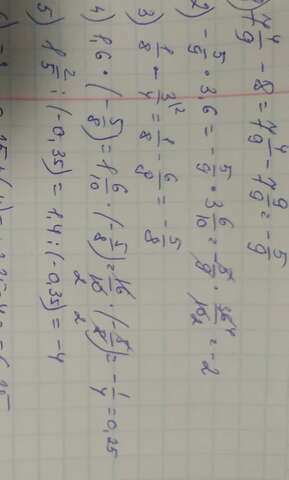 7 4/9 - 8 = 7 4/9 - 7 9/9 = - 5/9
2) - 5/9 · 3,6 = - 5/9 · 3 6/10 = - 5/9 · 36/10 = -2
3) 1/8 - 3/4 = 1/8 - 6/8 = - 5/8
4) 1,6 · (- 5/8) = 1 6/10 · (- 5/8) = 16/10 · (- 5/8) = - 1/4 = 0,25
5) 1 2/5 : (-0,35) = 1,4 : (-0,35) = -4